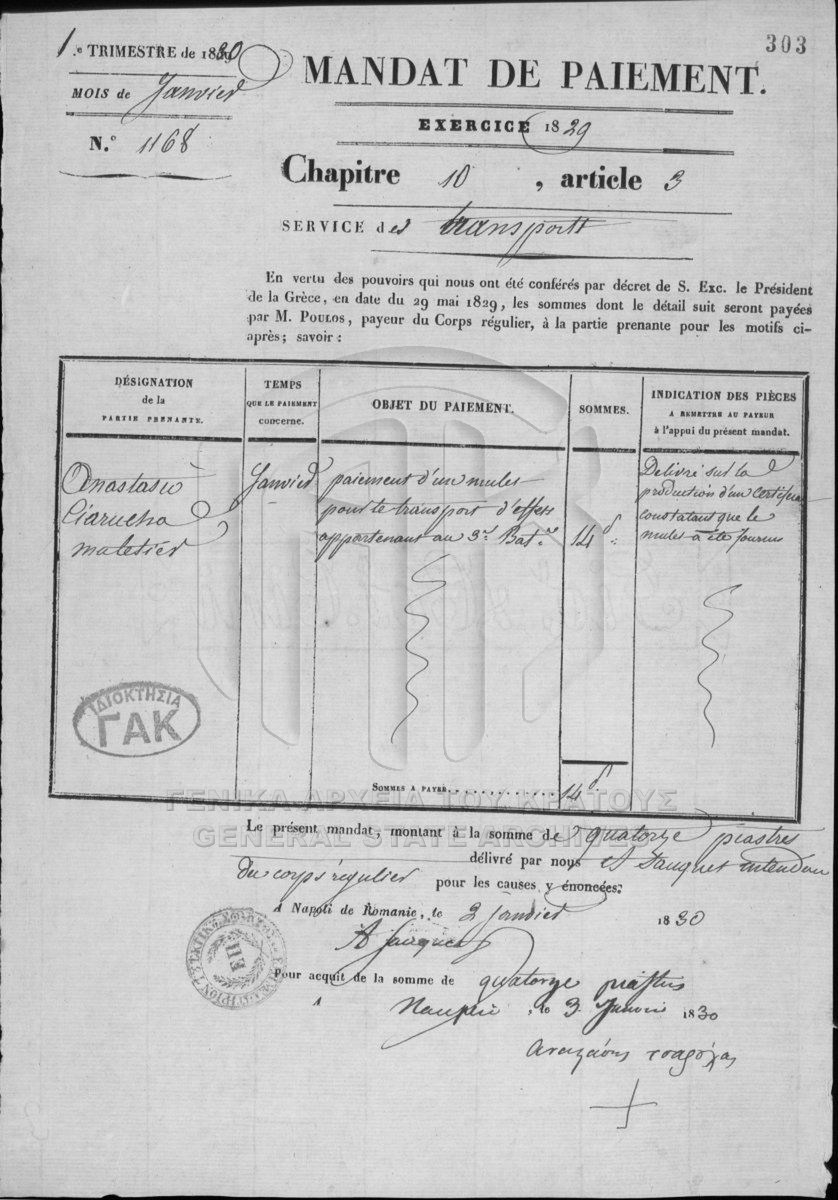 303
1.e TRIMESTRE de 1830
MOIS de Janvier
N.° 1168
MANDAT DE PAIEMENT.
EXERCICE 1829
Chapitre 10, article 3
SERVICE des transports
En vertu des pouvoirs qui nous ont été conférés par décret de S. Exc. le Président
de la Grèce, en date du 29 mai 1829, les sommes dont le détail suit seront payées
par M. POULOS, payeur du Corps régulier, à la partie prenante pour les motifs ci-
après; savoir:
DÉSIGNATION
de la
PARTIE PRENANTE.
TEMPS
QUE LE PAIEMENT
concerne.
OBJET DU PAIEMENT.
SOMMES.
INDICATION DES PIÈCES
A REMETTRE AU PAYEUR
à l'appui du présent mandat.
Anastasio
Ciarucha
muletier
Janvier
paiement d'un mulet
pour le transport d'effets
appartenant au 3.e Bat.
14
Délivré sur la
production d'un Certificat
constatant que le
mulet a été fourni
ΙΔΙΟΚΤΗΣΙΑ
ΓΑΚ
SOMMES A PAYER 14
ΓΕΝΙΚΑ ΑΡΧΕΙΑ ΤΟΥ ΚΡΑΤΟΥΣ
GENERAL STATE ARCHIVES
Le présent mandat, montant à la somme de quatorze piastres
délivré par nous intendant
du corps régulier pour les causes y énoncées;
A Napoli de Romanie, le 2 janvier 1830
Pour acquit de la somme de quatorze piastres
A Nauplie, le 3 Janvier 1830